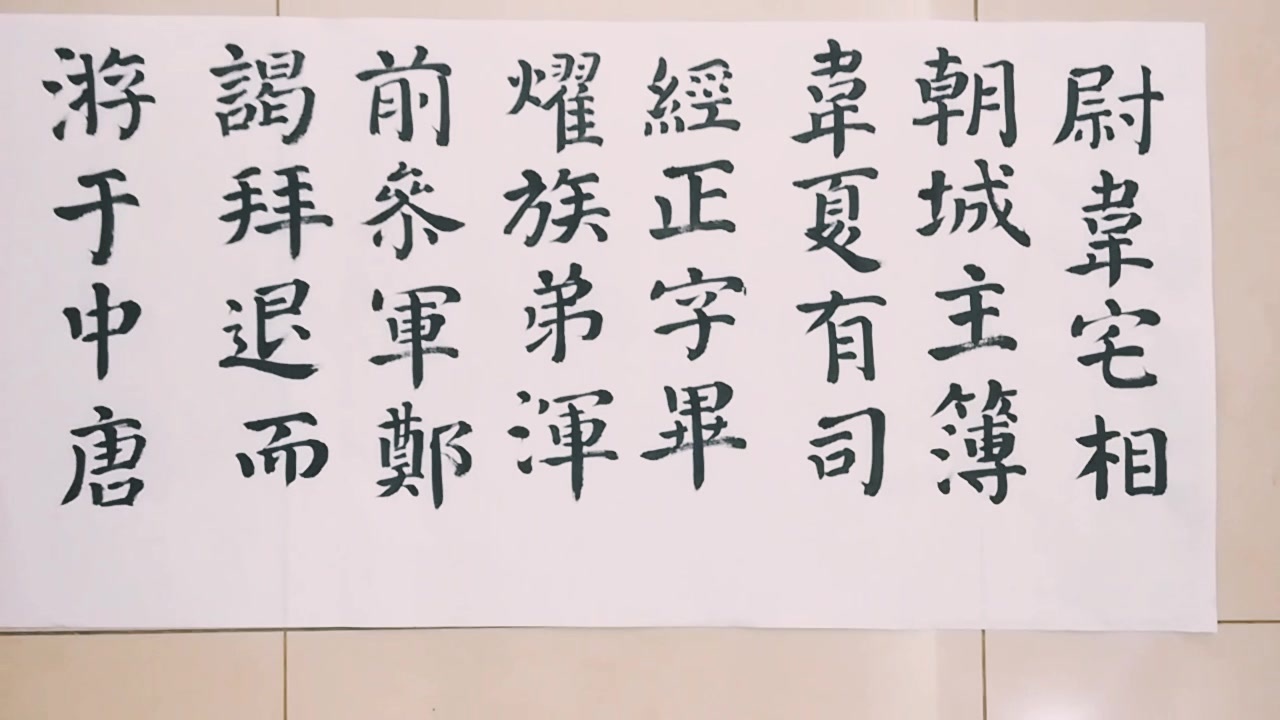 尉韋宅相
朝城主簿
韋夏有司
經正字畢
燿族弟渾
前叅軍鄭
謁拜退而
游于中唐